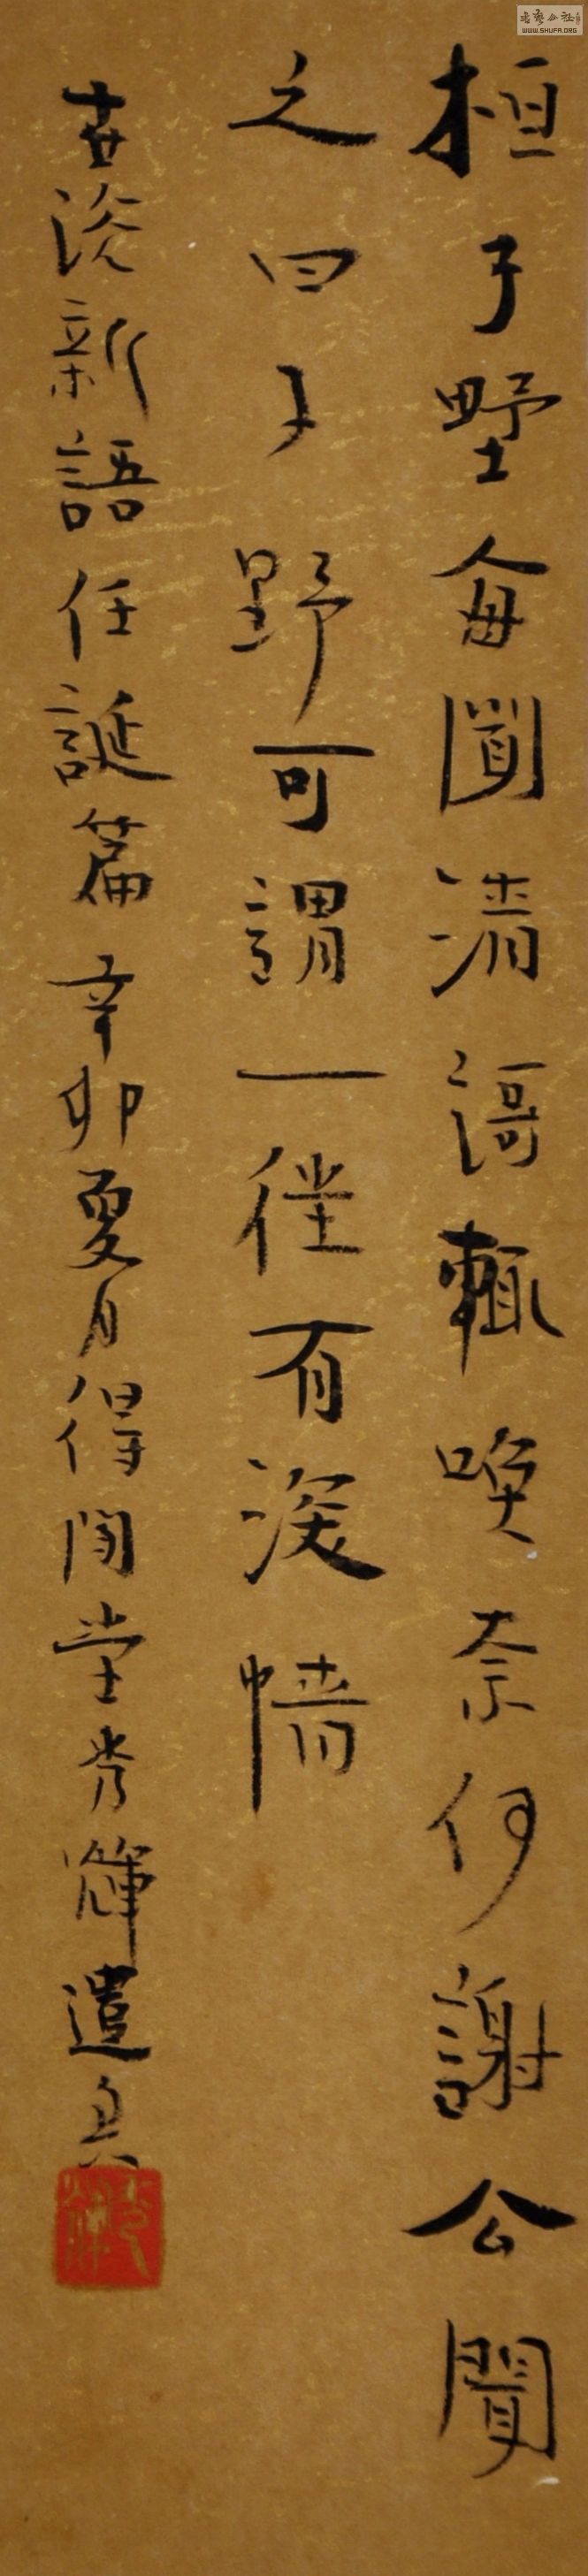 桓子野每聞清謌輒喚奈何謝公聞
之曰子野可謂一往有深情
世說新語任誕篇辛卯夏月得閒堂秀輝遣興
WWW.SHUFA.ORG